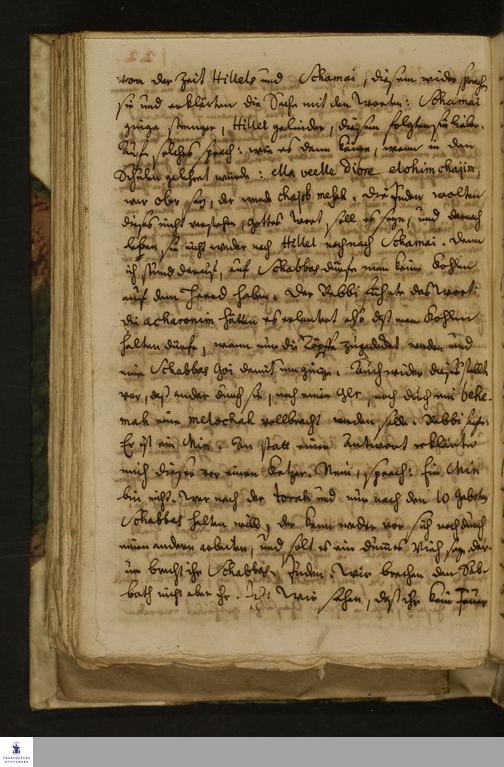 von der Zeit Hillels und Schamai, diesem wider sprach
sie und erklärten die Sache mit den Worten: Schamai
ginge strenger, Hillel gelinder, diesem folgten sie lieber.
Auf solches sprach: wie es denn käme, wenn in den
Schulen gelehret würde: ella veelle dibre elohim chajim,
wer aber sey, der werde chajob mehak. Die Juden wolten
dieses nicht verstehen, Gottes Wort soll es seyn, und dennoch
leben sie nicht weder nach Hillel noch nach Schamai. Denn
ich stünde darauf, auf Schabbas dürfe man keine Kohlen
auf dem Heerd haben. Der Rabbi führte das Wort:
die acharonim hätten es erläutert also daß man Kohlen
halten dürfe, wenn nur die Töpfe zugedeckt werden und
ein Schabbas Goi damit umginge. Auch wider dieses stellte
vor, daß weder durch sie, noch einen Ger, noch durch eine behe-
mah eine melochah vollbracht werden solle. Rabbi sagte:
Er ist ein Min. An statt einer Antwort erklärte
mich dieser vor einen Ketzer. Nein, sprach: Ein Min
bin nicht. Wer nach der torah und nur nach den 10 Geboten
Schabbas halten will, der kann weder vor sich noch durch
einen anderen arbeiten, und solt es ein dummes Vieh seyn, dar-
um brecht ihr Schabbas. Juden: Wir brechen den Sab-
bath nicht aber ihr. Ich: Wir sehen, daß ihr kein Feuer
FRANCKESCHE
STIFTUNGEN